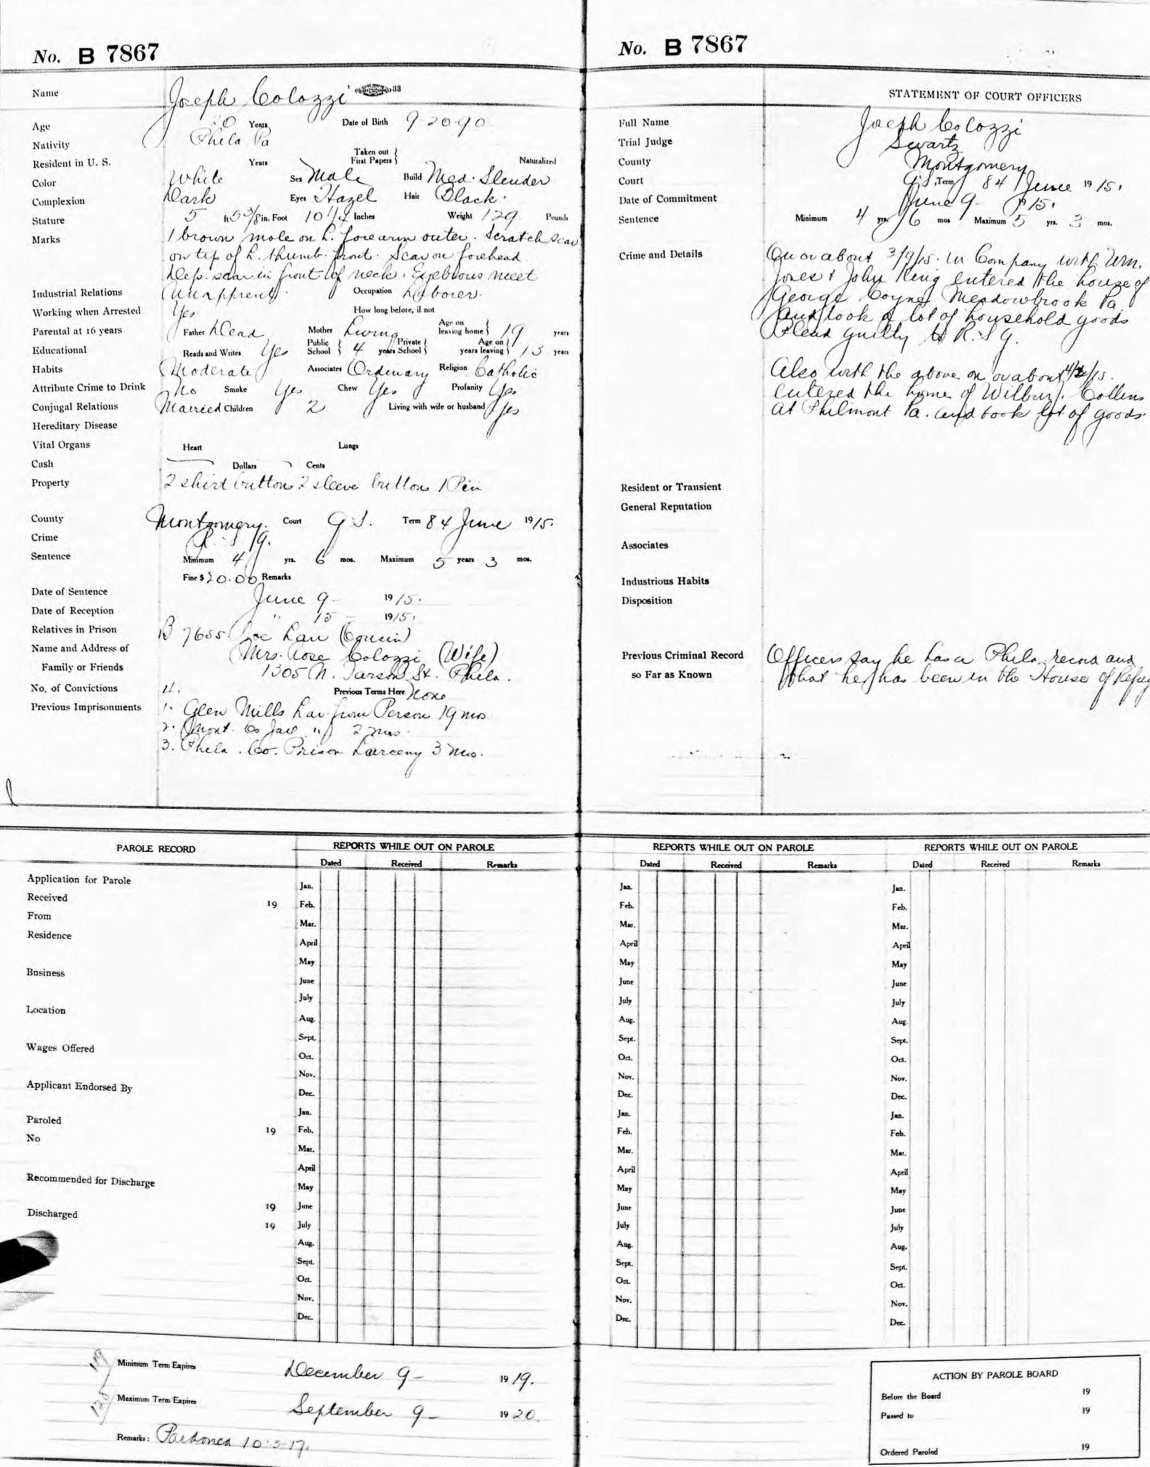 No. B 7867
Name Joseph Colozzi
Age Years Date of Birth 9-20-90
Nativity Phila Pa
Resident in U. S. Years Taken out First Papers Naturalized
Color White Sex Male Build Med. Slender
Complexion Dark Eyes Hazel Hair Black.
Stature 5 ft 5 3/8 in. Foot 10 1/4 Inches Weight 129 Pounds
Marks 1 brown mole on L. forearm outer. Scratch scar
on tip of L. thumb front. Scar on forehead
Dep. scar in front of neck. Eyebrows meet
Industrial Relations Unapprent. Occupation Laborer.
Working when Arrested Yes How long before, if not
Parental at 16 years Father Dead Mother Living Age on leaving home 19 years
Educational Reads and Writes Yes Public School 4 years Private School Age on years leaving 13 years
Habits Moderate Associates Ordinary Religion Catholic
Attribute Crime to Drink No Smoke Yes Chew Yes Profanity Yes
Conjugal Relations Married Children 2 Living with wife or husband Yes
Hereditary Disease
Vital Organs Heart Lungs
Cash Dollars Cents
Property 2 shirt buttons 2 sleeve buttons 1 Pin
County Montgomery. Court Q S. Term 84 June 1915.
Crime R. S. G.
Sentence Minimum 4 yrs. 6 mos. Maximum 5 years 3 mos.
Fine $ 20.00 Remarks
Date of Sentence June 9 - 1915.
Date of Reception " 15 - 1915.
Relatives in Prison B 7655 Joe (Cousin)
Name and Address of Mrs. Rose Colozzi (Wife)
Family or Friends 1305 N. St. Phila.
No. of Convictions 4. Previous Terms Here None
Previous Imprisonments 1. Glen Mills Lar from Person 19 mos
2. Mont. Co Jail " 2 mos.
3. Phila. Co. Prison Larceny 3 mos.
No. B 7867
STATEMENT OF COURT OFFICERS
Full Name Joseph Colozzi
Trial Judge Swartz
County Montgomery
Court Q.S. Term 84 June 1915.
Date of Commitment June 9 - 1915.
Sentence Minimum 4 yrs. 6 mos Maximum 5 yrs. 3 mos.
Crime and Details On or about 3/9/15. in Company with Wm.
Jones & John King entered the house of
George Coyne Meadowbrook Pa
and took a lot of household goods
Plead guilty to R. S. G.
Also with the above on or about
entered the home of Wilbur. Collins
at Philmont Pa. and took lot of goods.
Resident or Transient
General Reputation
Associates
Industrious Habits
Disposition
Previous Criminal Record Officers say he has a Phila. record and
so Far as Known that he has been in the House of
PAROLE RECORD
Application for Parole
Received 19
From
Residence
Business
Location
Wages Offered
Applicant Endorsed By
Paroled 19
No
Recommended for Discharge 19
Discharged 19
REPORTS WHILE OUT ON PAROLE
Dated Received Remarks
Jan.
Feb.
Mar.
April
May
June
July
Aug.
Sept.
Oct.
Nov.
Dec.
Jan.
Feb.
Mar.
April
May
June
July
Aug.
Sept.
Oct.
Nov.
Dec.
REPORTS WHILE OUT ON PAROLE
Dated Received Remarks
Jan.
Feb.
Mar.
April
May
June
July
Aug.
Sept.
Oct.
Nov.
Dec.
Jan.
Feb.
Mar.
April
May
June
July
Aug.
Sept.
Oct.
Nov.
Dec.
REPORTS WHILE OUT ON PAROLE
Dated Received Remarks
Jan.
Feb.
Mar.
April
May
June
July
Aug.
Sept.
Oct.
Nov.
Dec.
Jan.
Feb.
Mar.
April
May
June
July
Aug.
Sept.
Oct.
Nov.
Dec.
Minimum Term Expires December 9 - 1919.
Maximum Term Expires September 9 - 1920.
Remarks: Pardoned 10-3-17.
ACTION BY PAROLE BOARD
Before the Board 19
Passed to 19
Ordered Paroled 19